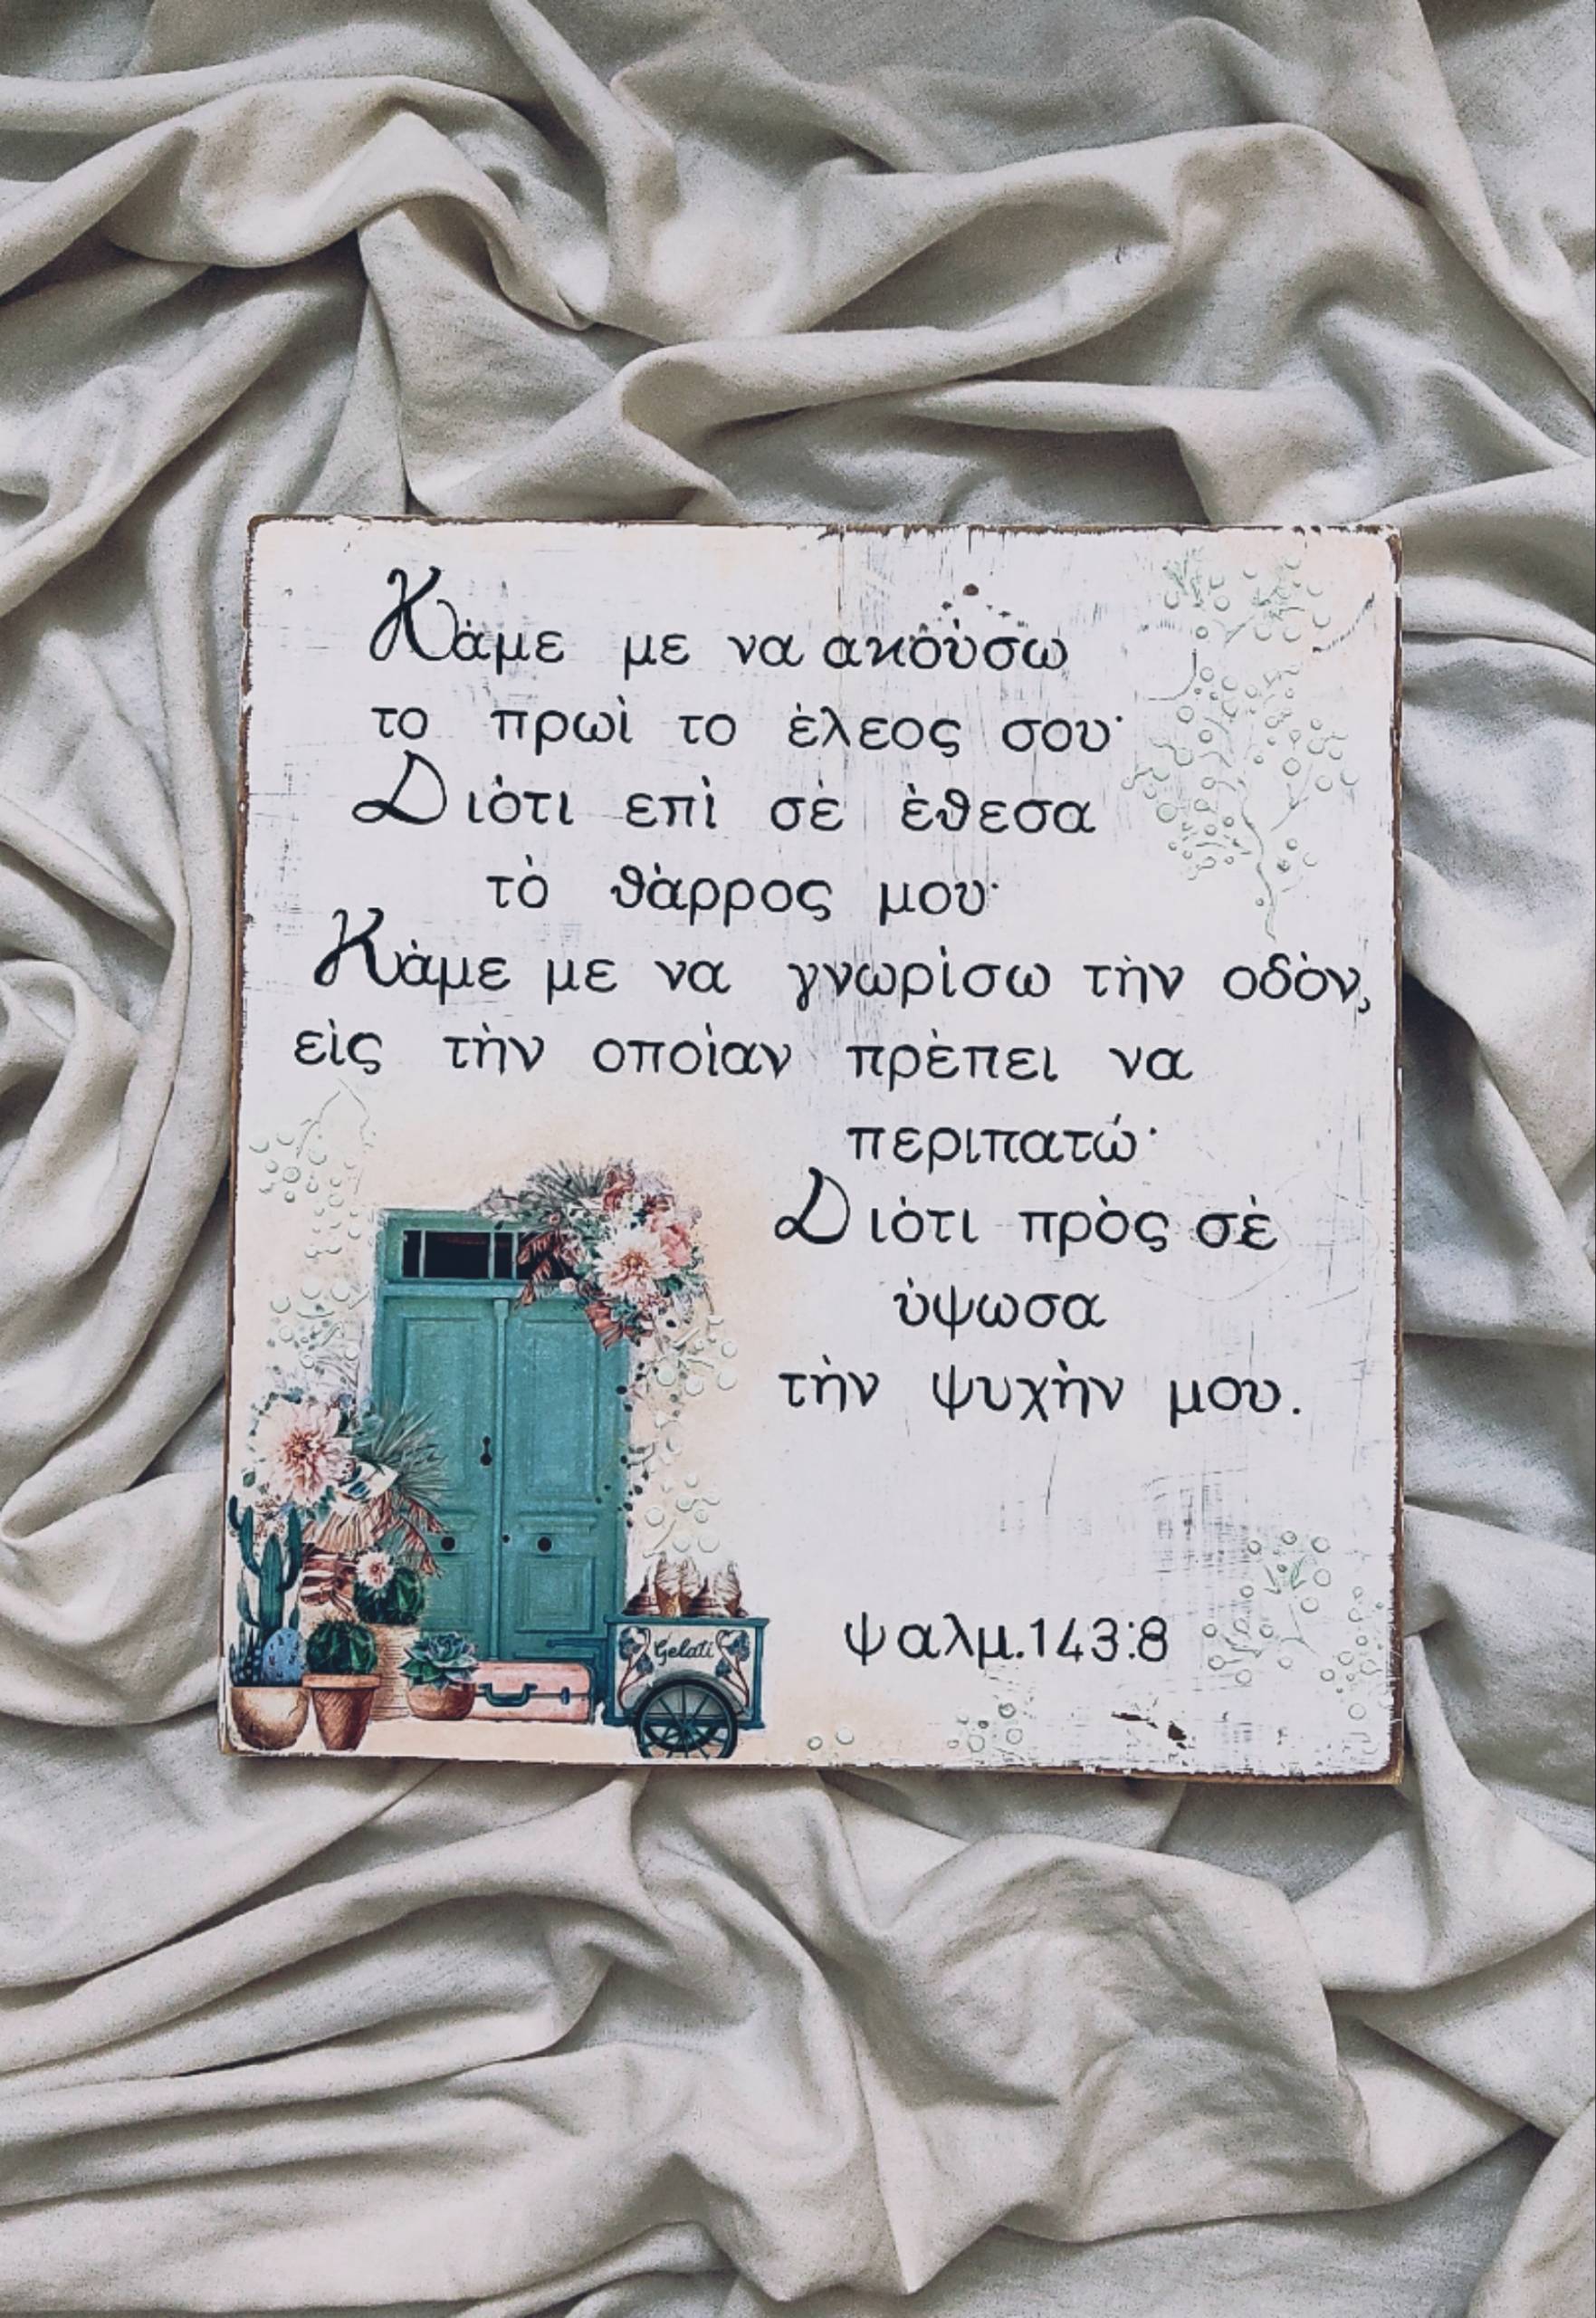 Κὰμε με να ακοὺσω
το πρωὶ το ἐλεος σου·
Διὸτι επὶ σὲ ἐθεσα
τὸ θὰρρος μου·
Κὰμε με να γνωρὶσω τὴν οδὸν,
εὶς τὴν οποὶαν πρὲπει να
περιπατώ·
Διὸτι πρὸς σὲ
ὑψωσα
τὴν ψυχὴν μου.
Gelati
ψαλμ.143:8